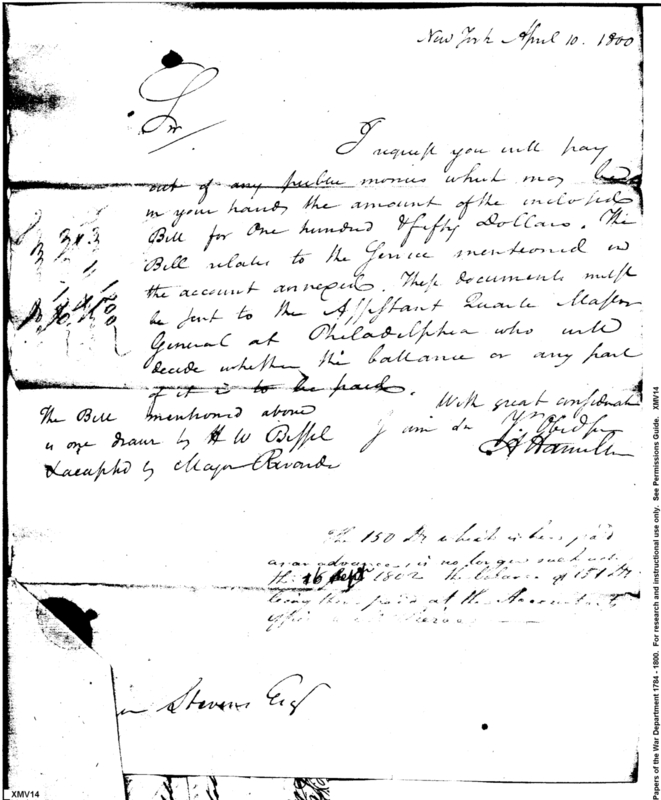 New York April 10. 1800
Sir
I request you will pay
out of any public monies which may be
in your hands the amount of the inclosed
Bill for One hundred & fifty Dollars. The
Bill relates to the Service mentioned in
the account annexed. These documents must
be sent to the Assistant Quarter Master
General at Philadelphia who will
decide whether the ballance or any part
of it is to be paid.
With great consideration
I am Sir Yr Obed Sr
A Hamilton
The Bill mentioned above
is one drawn by H W Bissel
& accepted by Major Rivardi
The 150 Drs which is been paid
as an advance is no longer such
this 16 Sept 1802 the balance of 151 Drs
being then paid at the Accountants
office
Stevens Esq
XMV14
Papers of the War Department 1784 - 1800. For research and instructional use only. See Permissions Guide. XMV14